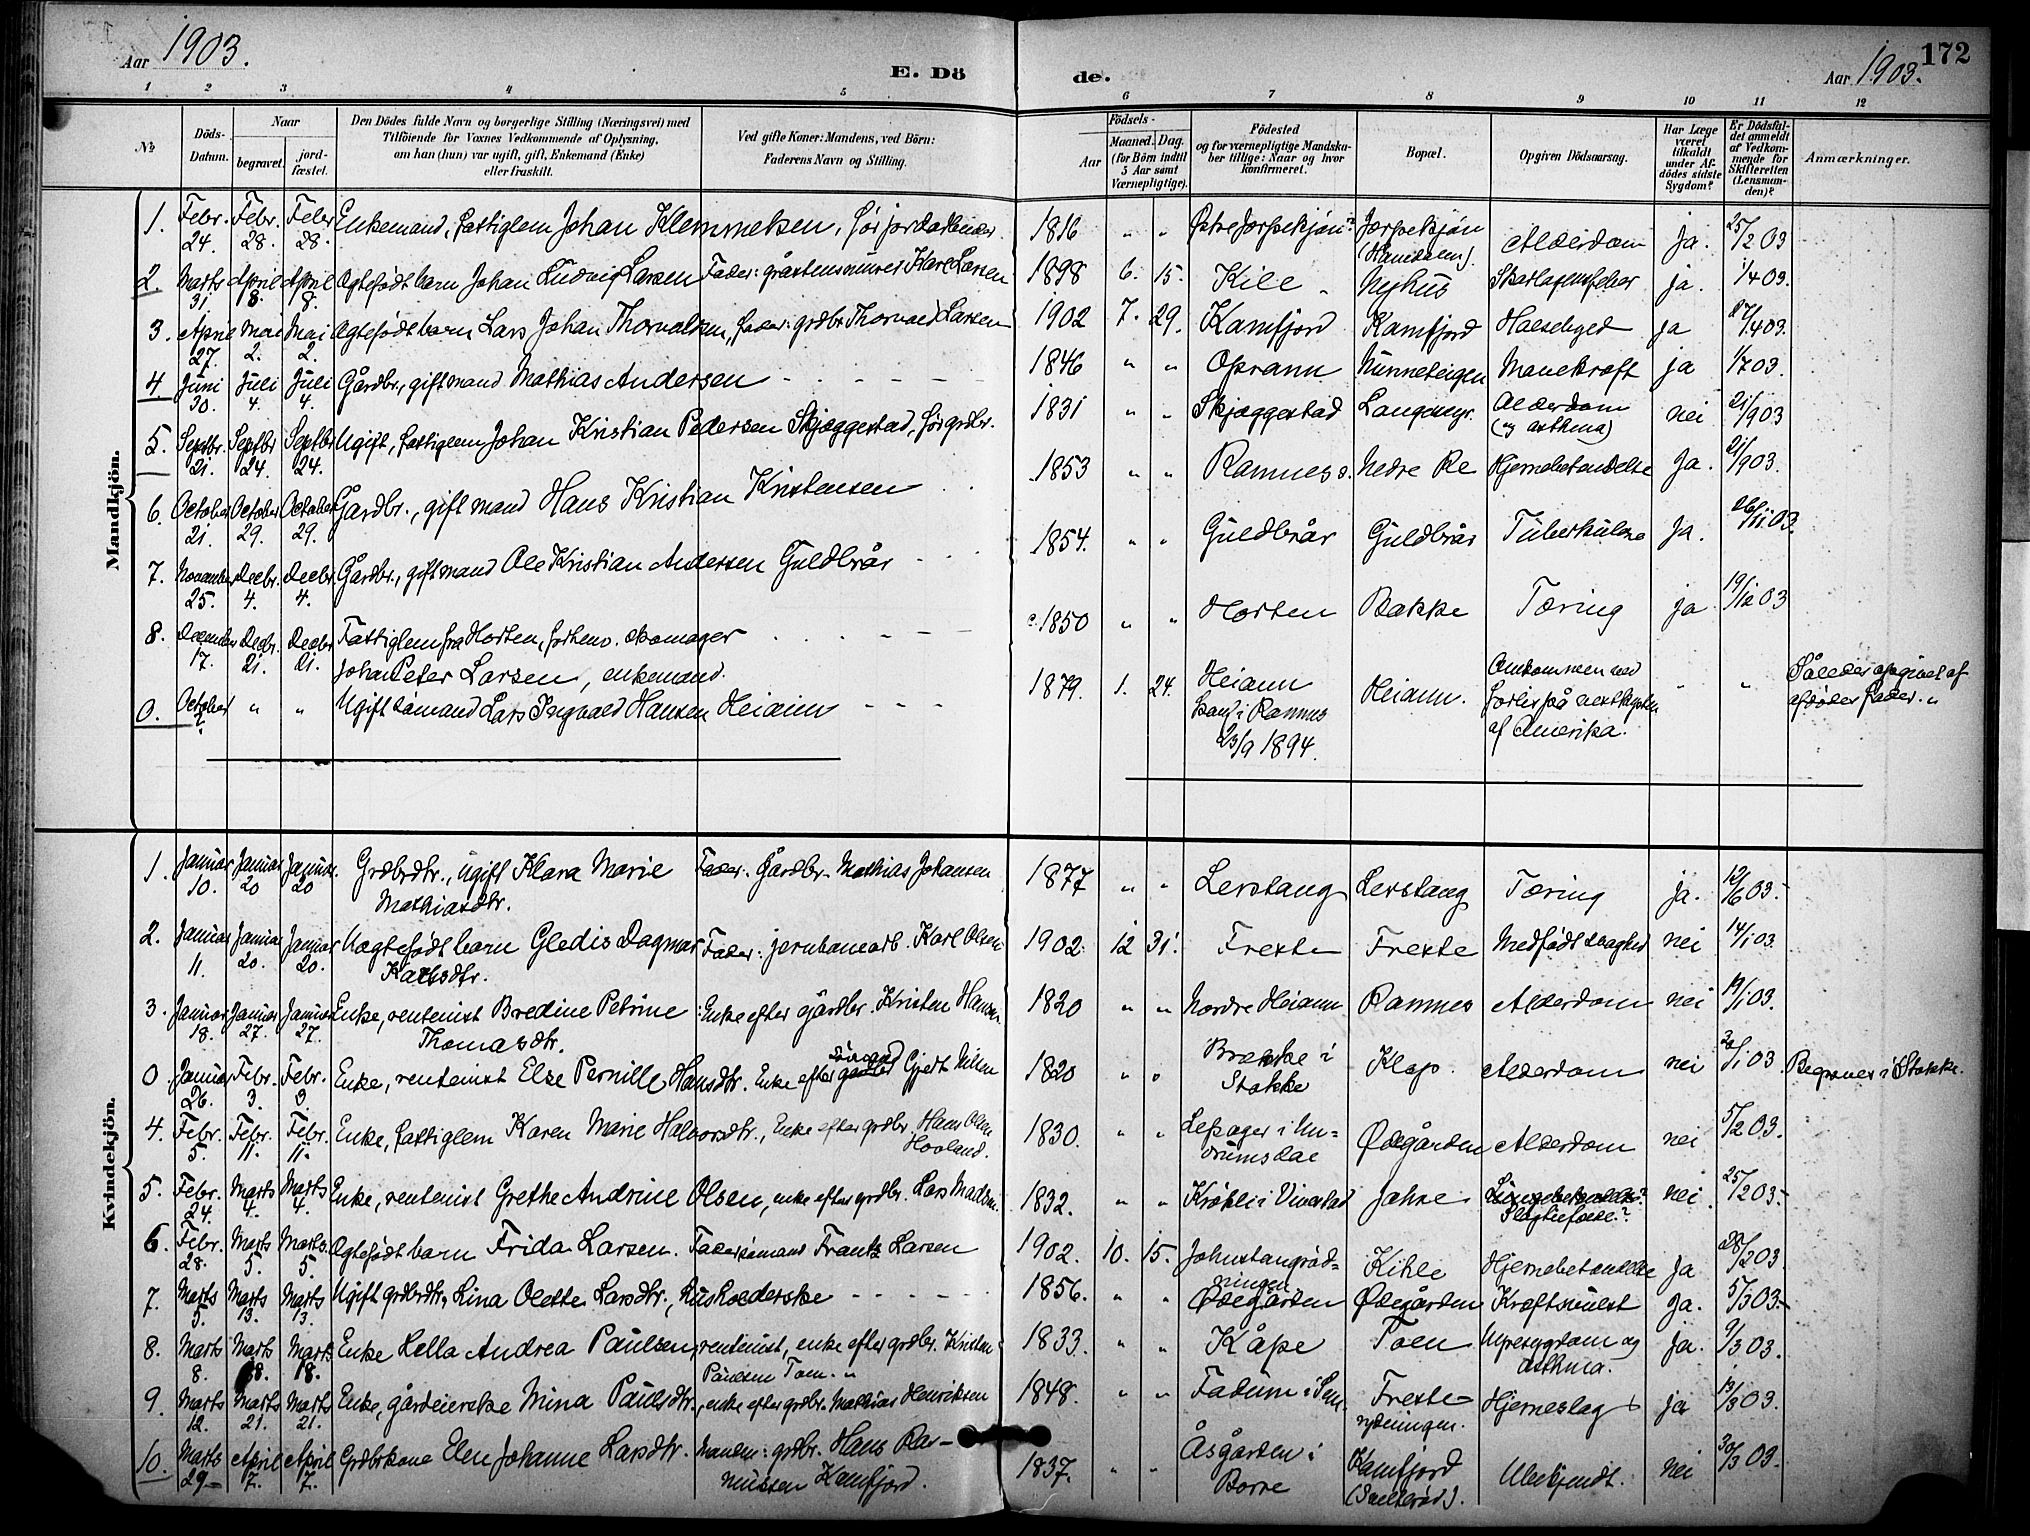 Aar 1903.
E. Dö
de.
Aar 1903.
172
1 2 3 4 5 6 7 8 9 10 11 12
№
Döds-
Datum.
Naar
begravet.
jord-
fæstet.
Den Dödes fulde Navn og borgerlige Stilling (Næringsvei) med
Tilföiende for Voxnes Vedkommende af Oplysning,
om han (hun) var ugift, gift, Enkemand (Enke)
eller fraskilt.
Ved gifte Koner: Mandens, ved Börn:
Faderens Navn og Stilling.
Födsels-
Aar
Maaned.
Dag.
(for Börn indtil
5 Aar samt
Værnepligtige).
Födested
og for værnepligtige Mandska-
ber tillige: Naar og hvor
konfirmeret.
Bopæl.
Opgiven Dödsaarsag.
Har Læge
været
tilkaldt
under Af-
dödes sidste
Sygdom?
Er Dödsfal-
det anmeldt
af Vedkom-
mende for
Skifteretten
(Lensman-
den)?
Anmærkninger.
Mandkjön.
1. Febr. 24. Febr. 28. Febr. 28. Enkemand, fattiglem Johan Klemmetsen, før jordarbeider. 1816 " " Østre Jerpekjøn Jerpekjøn Alderdom ja. 25/2 03
2. Marts 31 April 8. April 8. Ægtefødt barn Johan Ludvig Larsen Fader: gråstensmurer Karl Larsen 1898 6. 15. Kile Nyhus Skarlagensfeber ja. 1/4 03.
3. April 27. Mai 2. Mai 2. Ægtefødt barn Lars Johan Thorvaldsen, fader: grdbr. Thorvald Larsen 1902 7. 29. Kamfjord Kamfjord Halsebyld ja 27/4 03.
4 Juni 30. Juli 4. Juli 4. Gårdbr., gift mand Mathias Andersen 1846 " " Oprann Nunneteigen Mavekræft ja 1/7 03.
5. Septbr. 21. Septbr 24. Septbr 24. Ugift, fattiglem Johan Kristian Pedersen Skjæggestad, før grdbr. 1831 " " Skjæggestad Langemyr. Alderdom (og asthma) nei 21/9 03
6. October 21. October 29. October 29. Gårdbr., gift mand Hans Kristian Kristensen 1853 " " Ramnes Nedre Re Hjernebetændelse Ja. 21/ 03.
7. November 25. Decbr. 4. Decbr. 4. Gårdbr., gift mand Ole Kristian Andersen Guldbrår 1854. " " Guldbrår Guldbrår Tuberkulose Ja. 26/11 03.
8. December 17. Decbr. 21. Decbr 21. Fattiglem fra Horten, forhenv. skomager
Johan Peter Larsen, enkemand. c. 1850 " " Horten Bakke Tæring ja 19/12 03
0. October ? " " Ugift sømand Lars Ingvald Hansen Heiann 1879. 1. 24. Heiann
konf. i Ramnes
23/9 1894. Heiann. Omkommen ved
forlis på vestkysten
af Amerika. " " Således opgivet af
afdødes fader.
Kvindekjön.
1. Januar 10. Januar 20 Januar. 20 Grdbrdtr., ugift Klara Marie
Mathiasdtr. Fader: Gårdbr. Mathias Johansen 1877 " " Lerstang Lerstang Tæring ja. 12/ 03.
2. Januar 11. Januar 20. Januar 20. Uægtefødt barn Gledis Dagmar
Karlsdtr. Fader: jernbanearb. Karl Olsen 1902. 12 31. Freste Freste Medfødt svaghed nei 14/1 03
3. Januar 18. Januar 27. Januar 27. Enke, rentenist Bredine Petrine
Thomasdtr. Enke efter gårdbr. Kristen Hansen 1820 " " Nordre Heiann Ramnes Alderdom nei 19/1 03.
0. Januar 26. Febr. 3. Febr. 3. Enke, rentenist Else Pernille Hansdtr. Enke efter sømand gårdbr Gjert Nilsen 1820 " " Brekke i
Stokke Klop. Alderdom nei 30/1 03 Begraves i Stokke.
4. Febr. 5. Febr. 11. Febr. 11. Enke, fattiglem Karen Marie Halvorsdtr., Enke efter grdbr. Hans Olsen
Hovland. 1830. " " Lepager i Un-
drumsdal Ødegården Alderdom nei 5/2 03.
5. Febr. 24. Marts 4. Marts 4. Enke, rentenist Grethe Andrine Olsen, enke efter grdbr. Lars Madsen 1832. " " Krøkli i Vivestad Jahre Lungebetændelse?
Slagtilfælde? nei 25/2 03.
6. Febr. 28. Marts 5. Marts. 5. Ægtefødt barn Frida Larsen. Fader sømand Frantz Larsen 1902. 10. 15. Johnstangrød=
ningen Kihle Hjernebetændelse Ja 28/2 03.
7. Marts 5. Marts 13. Marts 13. Ugift grdbrdtr. Lina Olette Larsdtr., husholderske 1856. " " Ødegården Ødegården Kræftsvulst Ja. 5/3 03.
8. Marts 8. Marts 18. Marts 18. Enke Lella Andrea Paulsen, rentenist, enke efter grdbr. Kristen
Paulsen Toen. 1833. " " Kåpe Toen Nyresygdom og
asthma. ja. 9/3 03.
9. Marts 12. Marts 21. Marts 21. Enke, gårdeierske Mina Paulsdtr., enke efter grdbr. Mathias Henriksen 1848. " " Fadum i Sem Freste
rydningen. Hjerneslag ja 13/3 03.
10. Marts 29. April 7. April 7. Grdbrkone Elen Johanne Larsdtr. Manden: grdbr. Hans Ras-
mussen Kamfjord. 1837. " " Åsgården i
Borre Kamfjord Ubekjendt. nei 30/3 03.